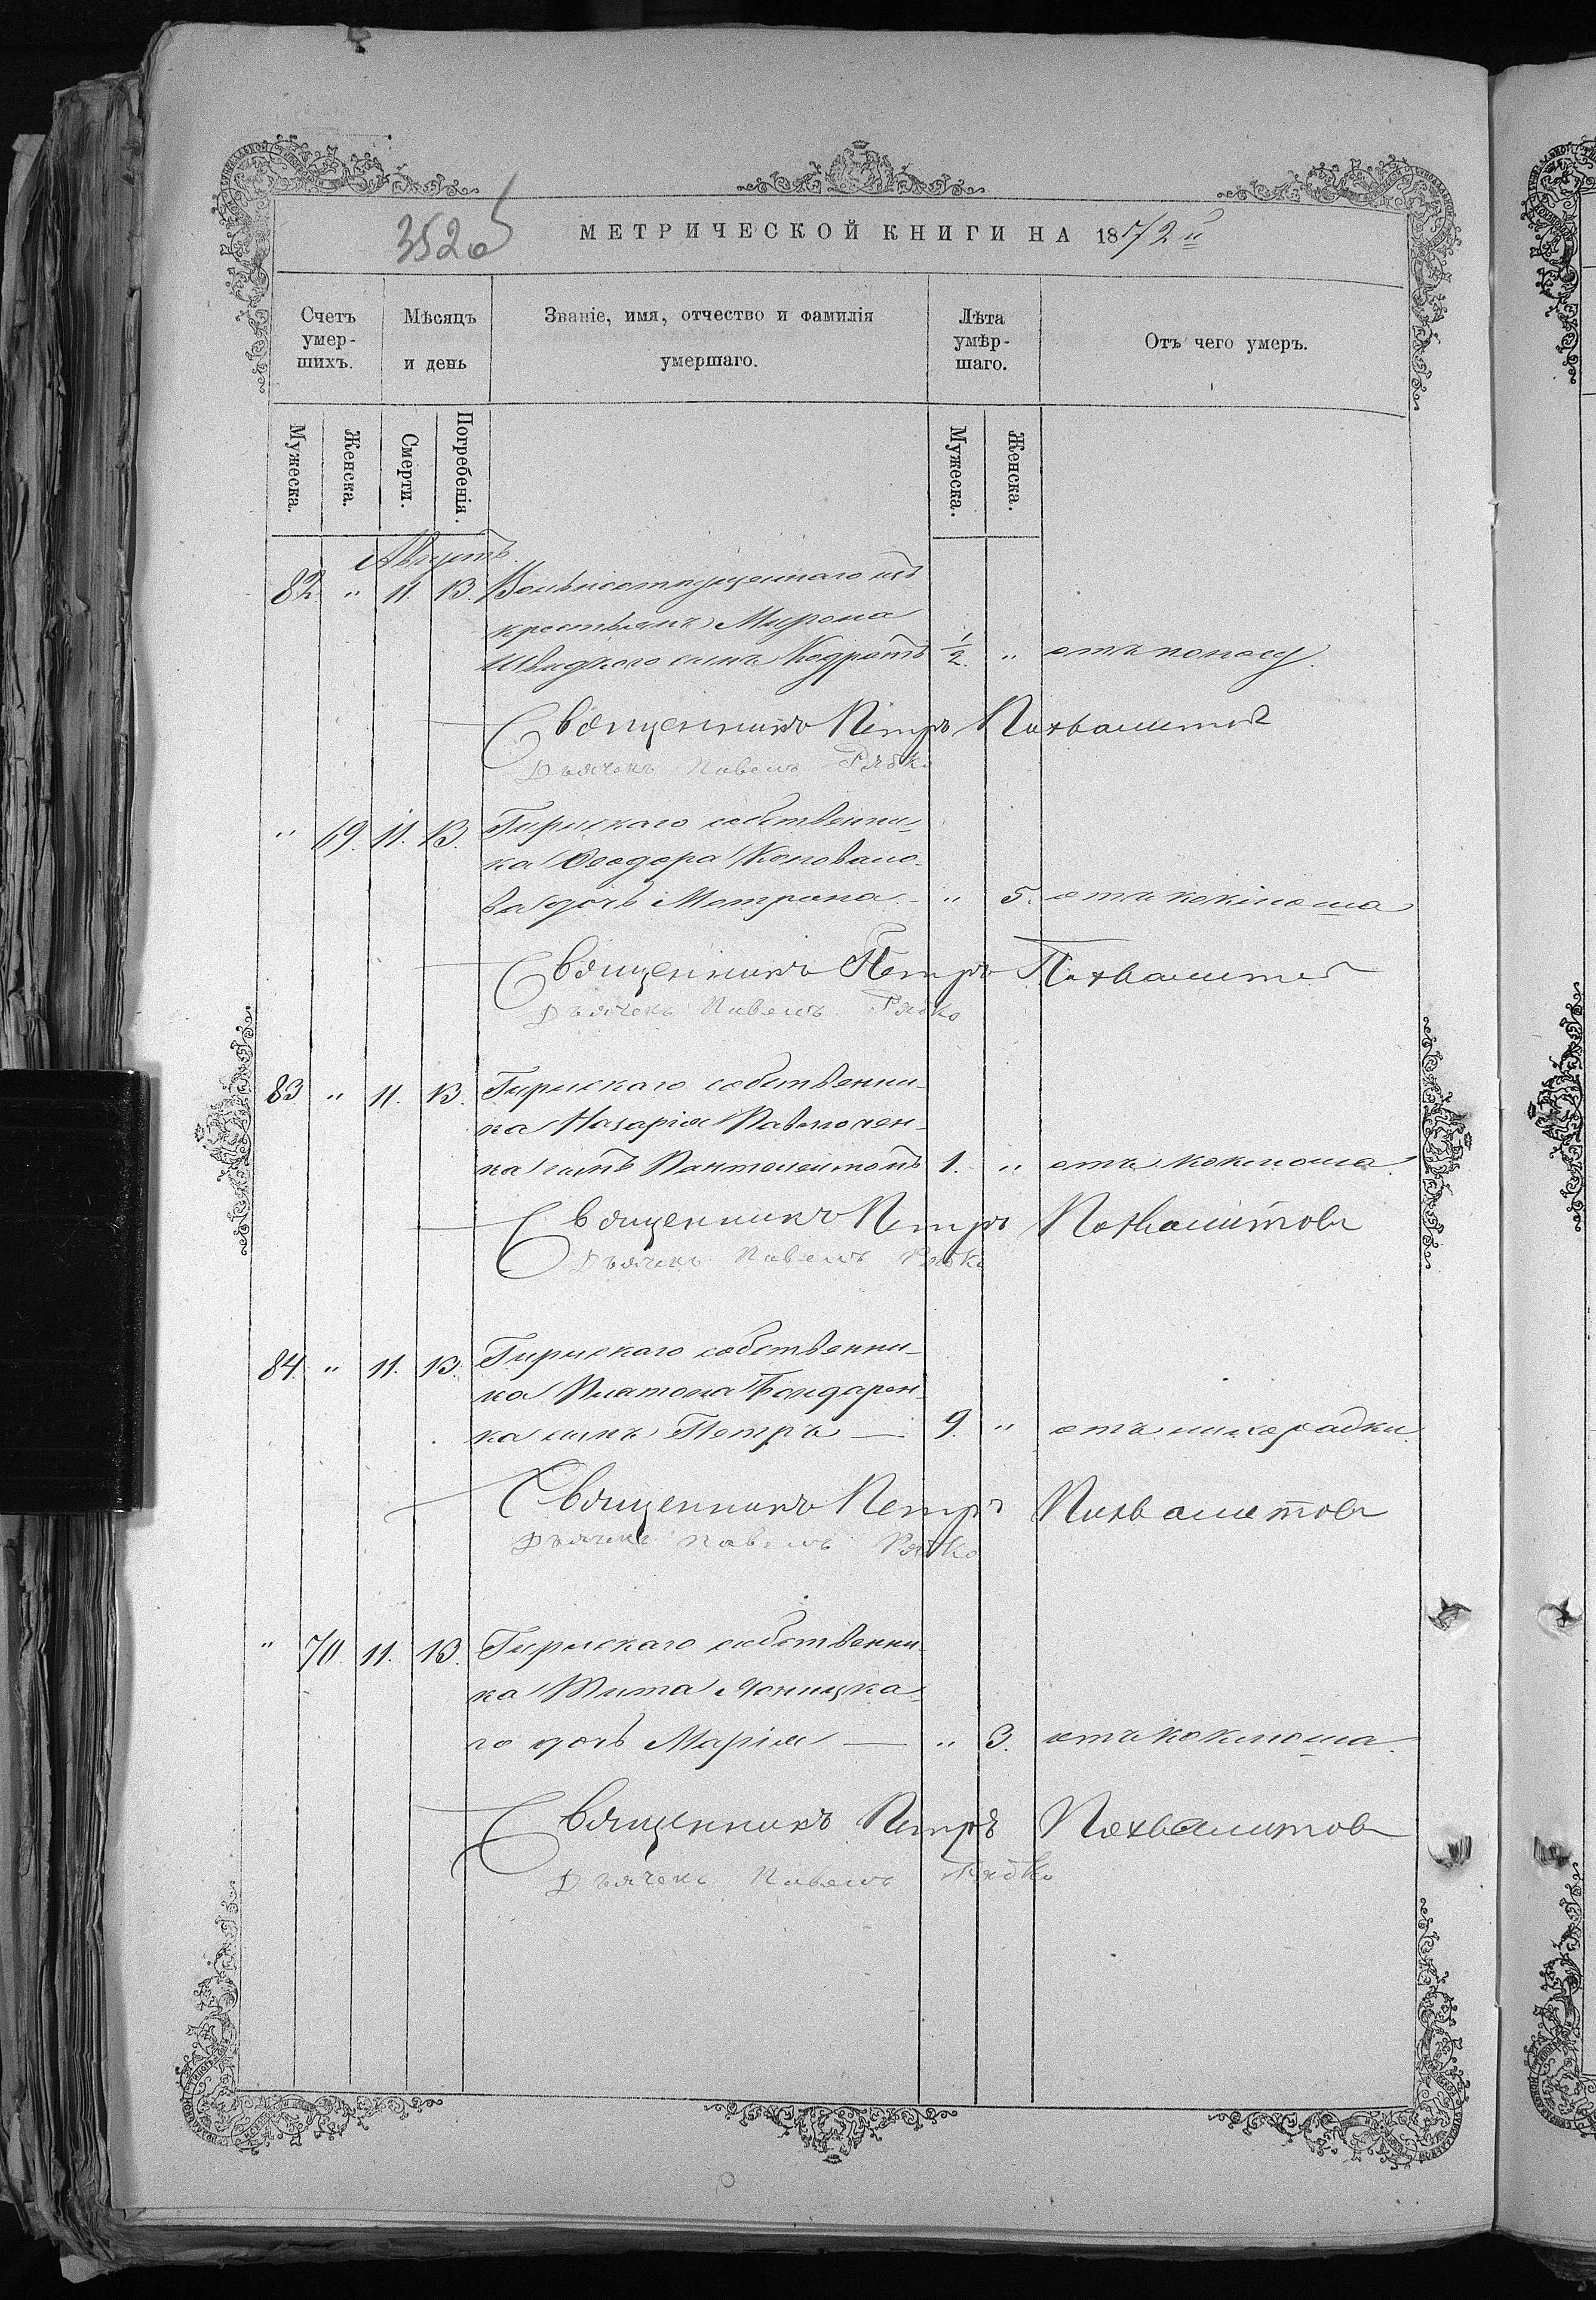 352 об
МЕТРИЧЕСКОЙ КНИГИ НА 1872й
Счетъ умер-шихъ. Мѣсяцъ и день Званіе, имя, отчество и фамилія умершаго. Лѣта умѣр-шаго. Отъ чего умеръ.
Мужеска. Женска. Смерти. Погребенія. Мужеска. Женска.
Августъ
82. " 11. 13. Вольноотпущеннаго изъ
крестьянъ Мирона
Швидкого сынъ Кодратъ 1/2. " отъ поносу.
Священникъ Петръ Похвалитовъ
Дьячекъ Павелъ Рябко
" 69. 11. 13. собственни-
ка Ѳеодора Коновало-
ва дочь Матрона - " 5. отъ коклюша
Священникъ Петръ Похвалитовъ
Дьячекъ Павелъ Рябко
83. " 11. 13. собственни-
ка Назарія Павлючен-
ка сынъ Пантелеимонъ 1. " отъ коклюша.
Священникъ Петръ Похвалитовъ
Дьячекъ Павелъ Рябко
84. " 11. 13. собственни-
ка Платона Бондарен-
ка сынъ Петръ — 9. " отъ лихорадки.
Священникъ Петръ Похвалитовъ
Дьячекъ Павелъ Рябко
" 70. 11. 13. собственни-
ка Тита
го дочь Марія — " 3. отъ коклюша.
Священникъ Петръ Похвалитовъ
Дьячекъ Павелъ Рябко